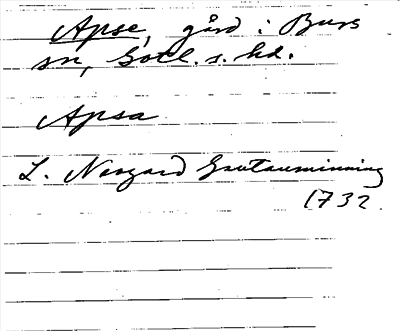 Apse, gård i Burs
sn, Gotl. s. hd.
Apsa
L. Norgard Grutauminning
1732.